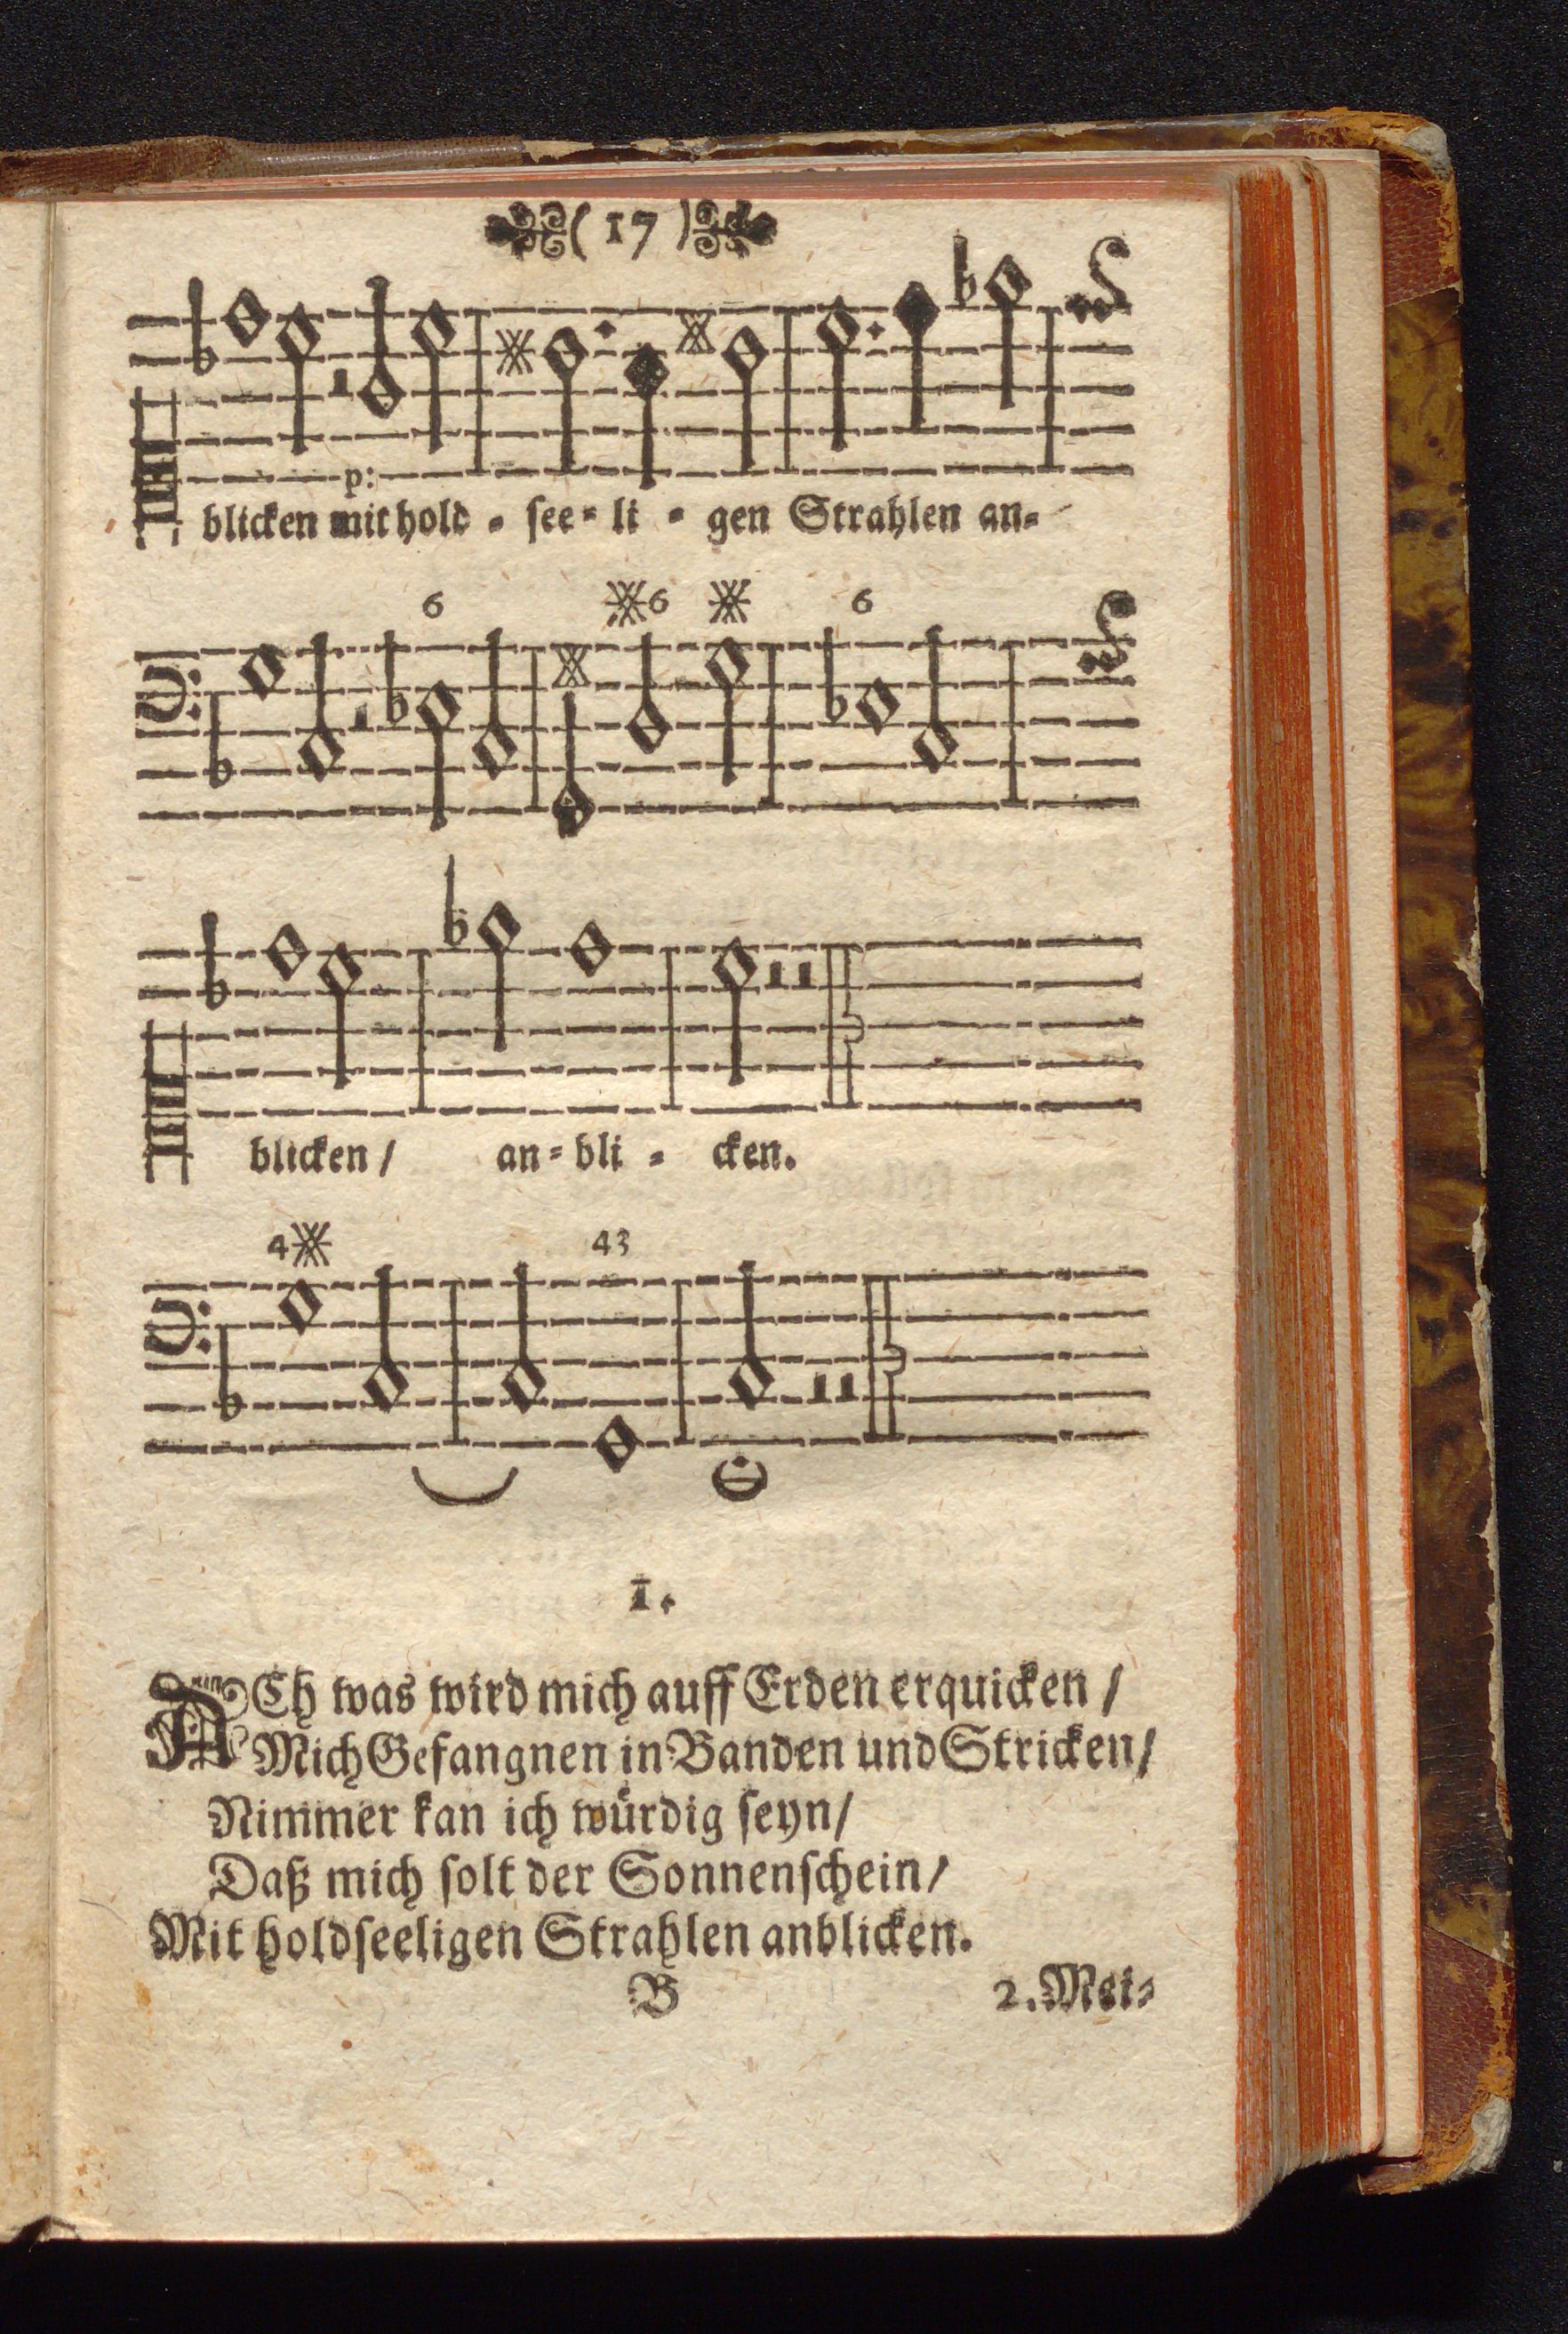 ( 17 )
p:
blicken mit hold - ſee- li - gen Strahlen an-
6 6 6
blicken / an- bli - cken.
4 43
1.
ACh was wird mich auff Erden erquicken /
Mich Gefangnen in Banden und Stricken /
Nimmer kan ich wuͤrdig ſeyn /
Daß mich ſolt der Sonnenſchein /
Mit holdſeeligen Strahlen anblicken.
B 2. Mei-